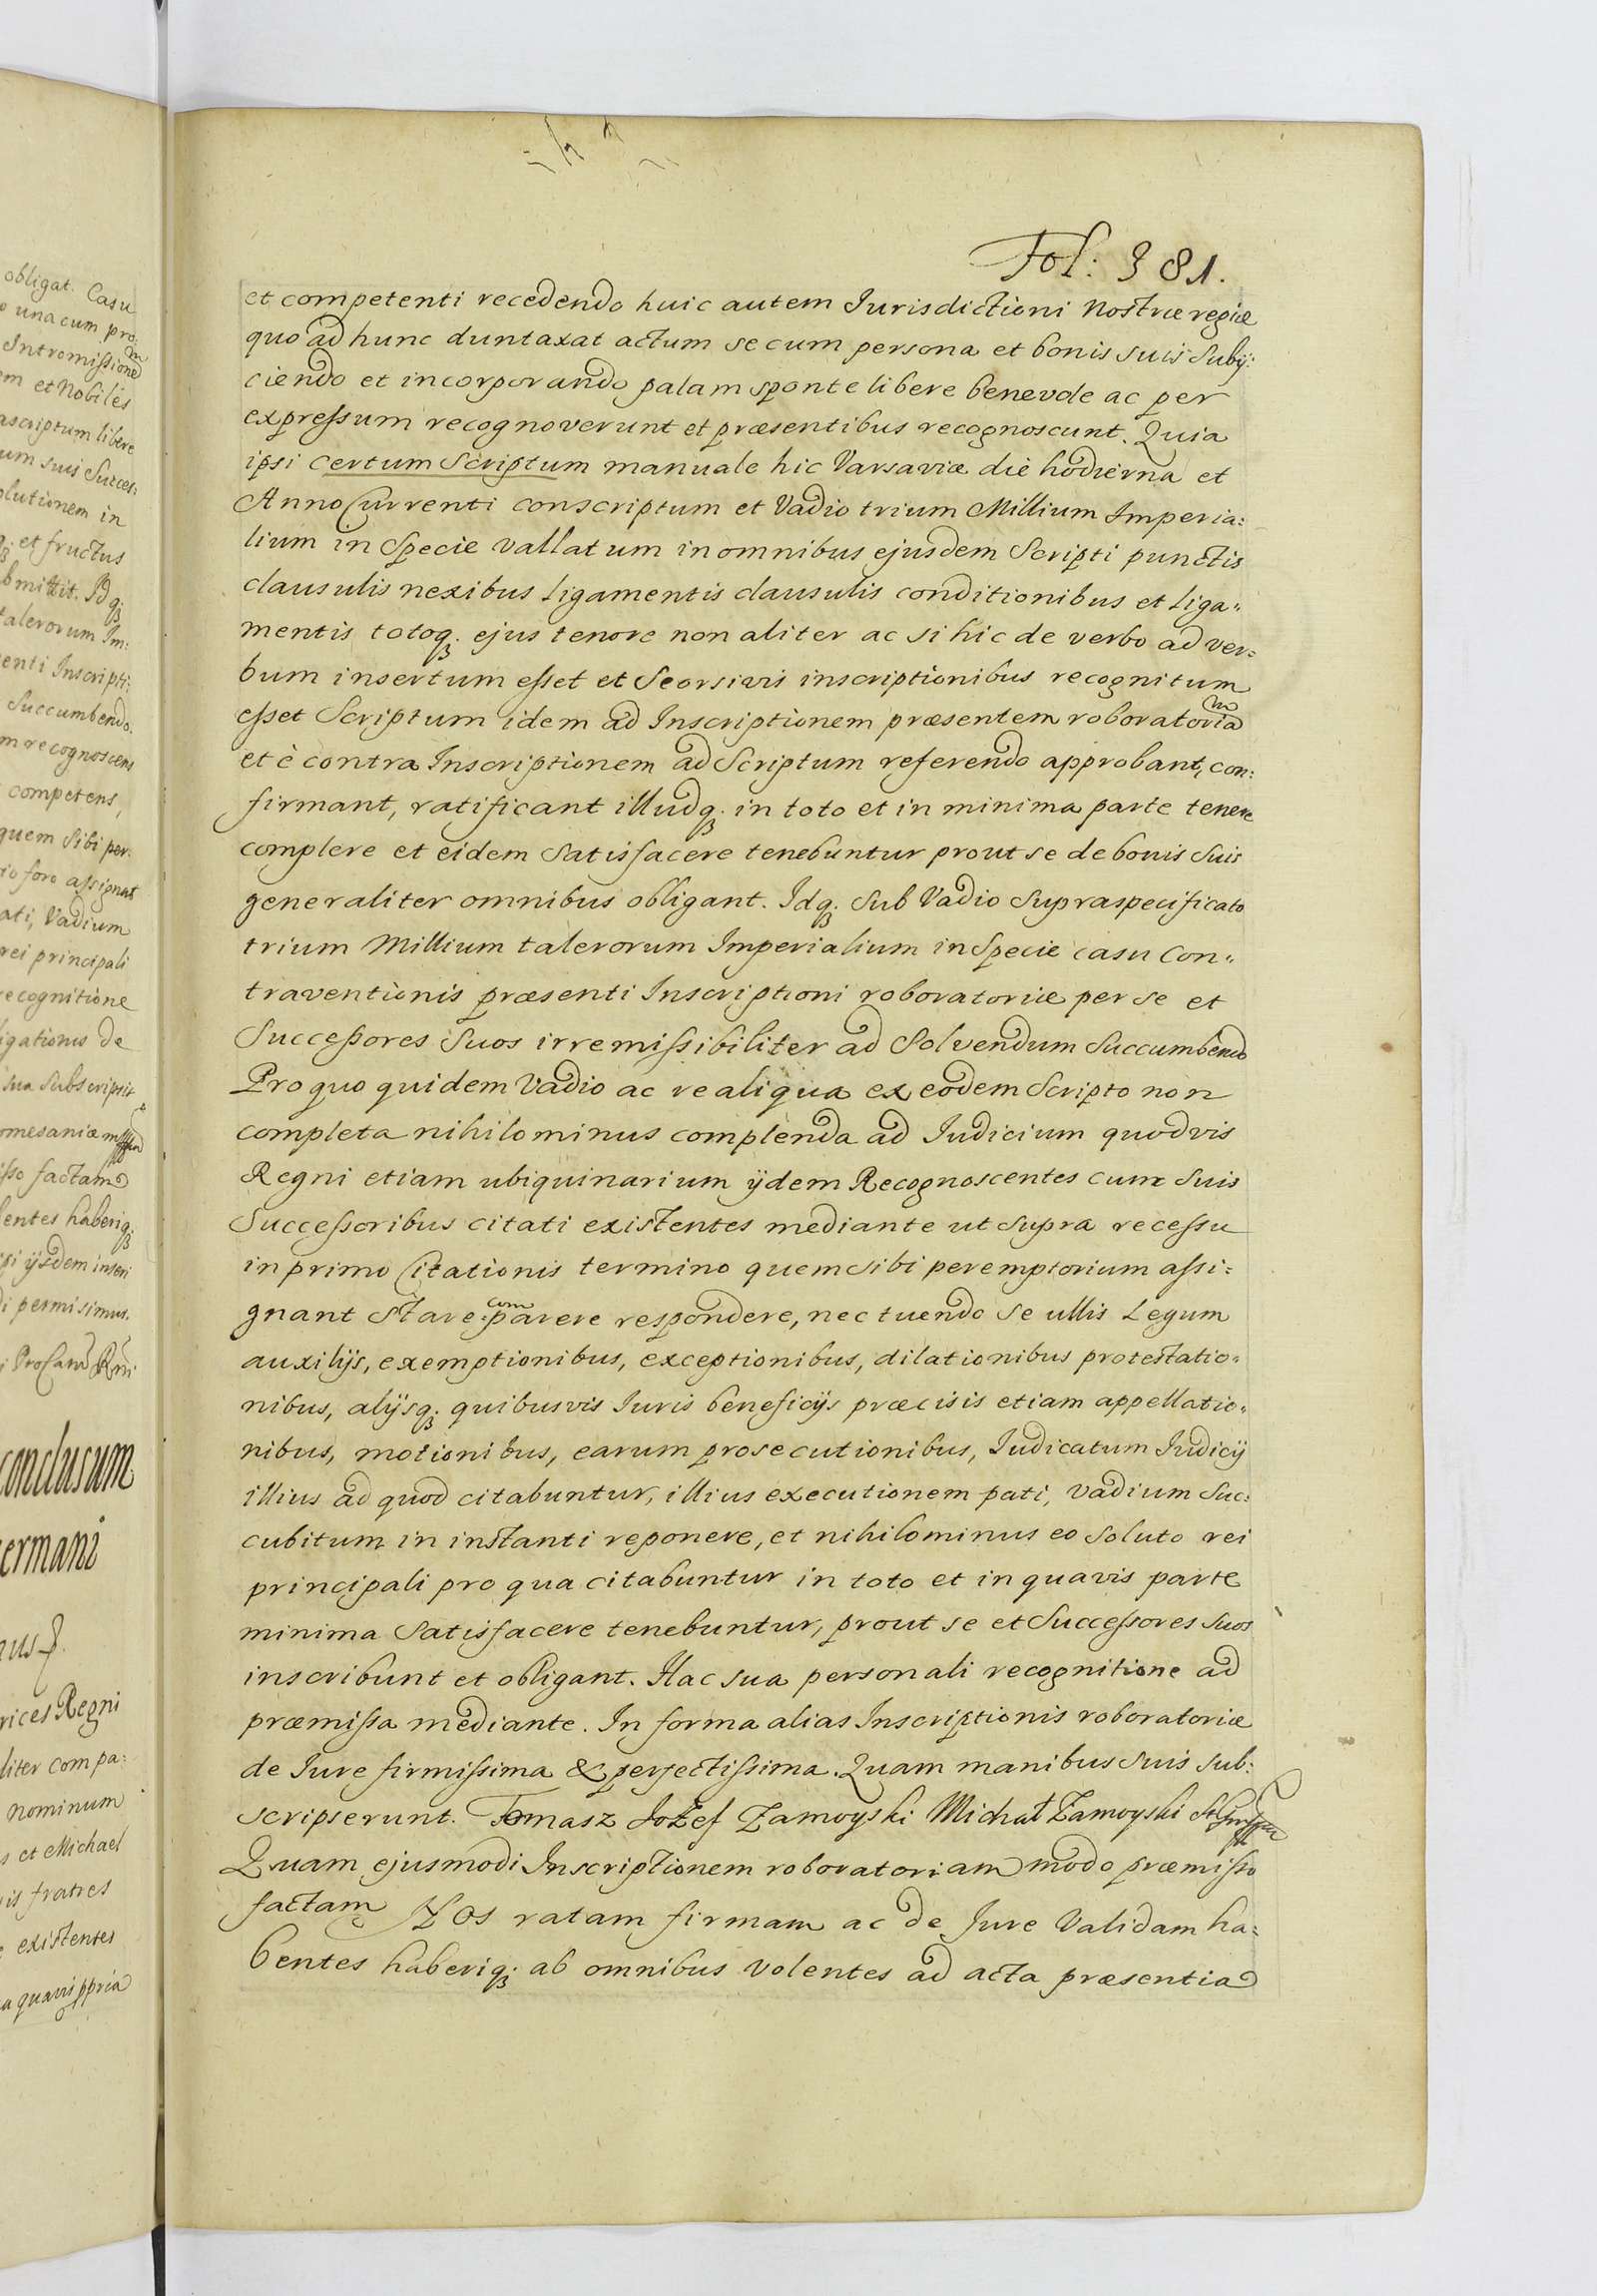 Fol: 381.
et competenti recedendo huic autem Jurisdictioni Nostræ regiæ
quo ad hunc duntaxat actum se cum persona et bonis suis Subij:
ciendo et incorporando palam sponte libere benevole ac per
expressum recognoverunt et præsentibus recognoscunt. Quia
ipsi certum Scriptum manuale hic Varsaviæ die hodierna et
Anno Currenti conscriptum et Vadio trium Millium Imperia:
lium in Specie vallatum in omnibus ejusdem Scripti punctis
clausulis nexibus Ligamentis clausulis conditionibus et Liga„
mentis totoq3 ejus tenore non aliter ac si hic de verbo ad ver=
bum insertum esset et Seorsivis inscriptionibus recognitum
esset Scriptum idem ad Inscriptionem præsentem roboratoriam
et è contra Inscriptionem ad Scriptum referendo approbant, con:
firmant, ratificant illudq3 in toto et in minima parte tenere
complere et eidem Satisfacere tenebuntur prout se de bonis Suis
generaliter omnibus obligant. Idq3 Sub Vadio Supraspecificato
trium Millium talerorum Imperialium in Specie casu Con„
traventionis præsenti Inscriptioni roboratoriæ per se et
Successores Suos irremissibiliter ad Solvendum Succumbendo
Pro quo quidem Vadio ac re aliqua ex eodem Scripto non
completa nihilominus complenda ad Iudicium quodvis
Regni etiam ubiquinarium ijdem Recognoscentes cum Suis
Successoribus citati existentes mediante ut supra recessu
in primo Citationis termino quem sibi peremptorium assi=
gnant Stare comparere respondere, nec tuendo se ullis Legum
auxilijs, exemptionibus, exceptionibus, dilationibus protestatio„
nibus, alijsq3 quibusvis Iuris beneficijs præcisis etiam appellatio„
nibus, motionibus, earum prosecutionibus, Iudicatum Iudicij
illius ad quod citabuntur, illius executionem pati, Vadium Suc:
cubitum in instanti reponere, et nihilominus eo Soluto rei
principali pro qua citabuntur in toto et in quavis parte
minima Satisfacere tenebuntur, prout se et Successores Suos
inscribunt et obligant. Hac sua personali recognitione ad
præmissa mediante. In forma alias Inscriptionis roboratoriæ
de Iure firmissima & perfectissima. Quam manibus suis sub:
scripserunt. Tomasz Jozef Zamoyski Michał Zamoyski
Quam ejusmodi Inscriptionem roboratoriam modo præmisso
factam Nos ratam firmam ac de Jure Validam ha=
bentes haberiq3 ab omnibus Volentes ad acta præsentia
obligat. Casu
una cum pro
Intromissionem
et Nobiles
libere
um suis Succes:
in
et fructus
Idq3
talerorum Im:
enti Inscripti:
Succumbendo.
recognoscens
competens,
quem Sibi per:
foro assignat
ati, Vadium
rei principali
recognitione
de
sua Subscripsit
factam
haberiq3
ijsdem inseri
permisimus.
conclusum
Regni
compa:
nominum
et Michael
fratres
existentes
quavis ppria